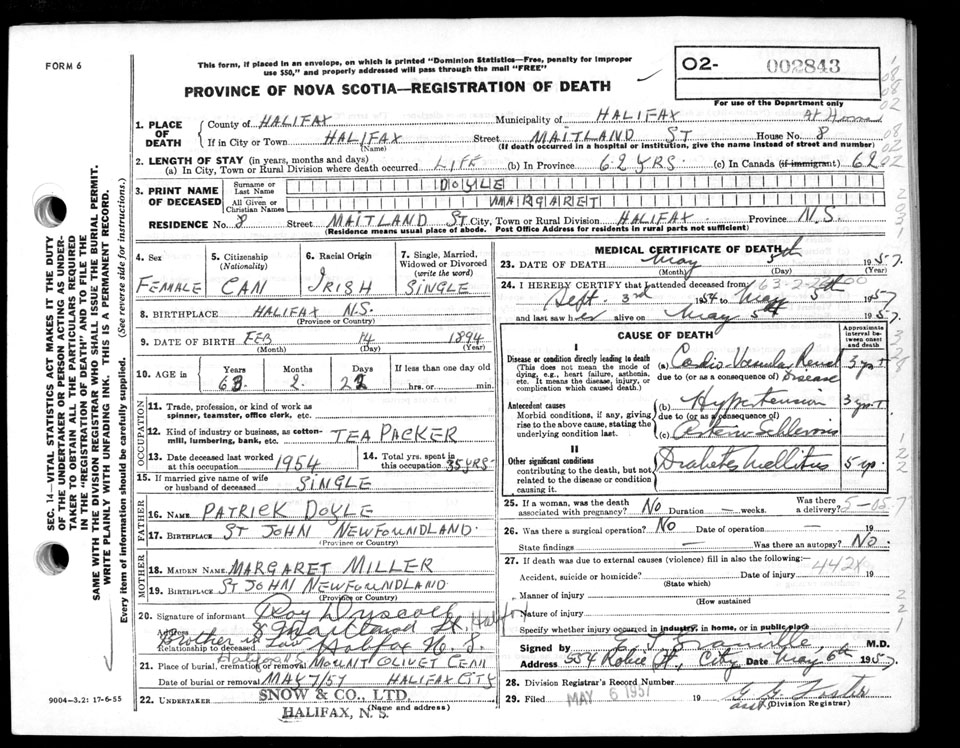 FORM 6
This form, if placed in an envelope, on which is printed "Dominion Statistics—Free, penalty for improper
use $50," and properly addressed will pass through the mail "FREE"
PROVINCE OF NOVA SCOTIA—REGISTRATION OF DEATH
02- 002843
For use of the Department only
1. PLACE OF DEATH
County of HALIFAX Municipality of HALIFAX At Home
If in City or Town HALIFAX Street MAITLAND ST House No. 8
(Name) (If death occurred in a hospital or institution, give the name instead of street and number)
2. LENGTH OF STAY (in years, months and days)
(a) In City, Town or Rural Division where death occurred LIFE (b) In Province 62 YRS. (c) In Canada (if immigrant) 62
3. PRINT NAME OF DECEASED
Surname or Last Name DOYLE
All Given or Christian Names MARGARET
RESIDENCE No. 8 Street MAITLAND ST City, Town or Rural Division HALIFAX. Province N.S.
(Residence means usual place of abode. Post Office Address for residents in rural parts not sufficient)
4. Sex FEMALE
5. Citizenship (Nationality) CAN
6. Racial Origin IRISH
7. Single, Married, Widowed or Divorced (write the word) SINGLE
8. BIRTHPLACE HALIFAX N.S.
(Province or Country)
9. DATE OF BIRTH FEB 14 1894
(Month) (Day) (Year)
10. AGE in Years 63 Months 2 Days 22 If less than one day old
hrs. or min.
OCCUPATION
11. Trade, profession, or kind of work as
spinner, teamster, office clerk, etc.
12. Kind of industry or business, as cotton-
mill, lumbering, bank, etc. TEA PACKER
13. Date deceased last worked
at this occupation 1954
14. Total yrs. spent in
this occupation 35 YRS
15. If married give name of wife
or husband of deceased SINGLE
FATHER
16. Name PATRICK DOYLE
17. BIRTHPLACE ST JOHN NEWFOUNDLAND.
(Province or Country)
MOTHER
18. MAIDEN NAME MARGARET MILLER
19. BIRTHPLACE ST JOHN NEWFOUNDLAND
(Province or Country)
20. Signature of informant Roy Dryscoll
Address 8 Maitland St. Halifax
Relationship to deceased Brother in Law Halifax N. S.
21. Place of burial, cremation or removal MOUNT OLIVET CEM
Date of burial or removal MAY 7/57 HALIFAX CITY
22. UNDERTAKER SNOW & CO., LTD.
HALIFAX, N. S.
(Name and address)
MEDICAL CERTIFICATE OF DEATH
23. DATE OF DEATH May 5th 1957.
(Month) (Day) (Year)
24. I HEREBY CERTIFY that I attended deceased from
Sept. 3rd 1954 to May 5th 1957
and last saw her alive on May 5th 1957.
CAUSE OF DEATH
Approximate interval between onset and death
I
Disease or condition directly leading to death
(This does not mean the mode of
dying, e.g., heart failure, asthenia,
etc. It means the disease, injury, or
complication which caused death.)
(a) Cardio Vascular Renal Disease 3 yrs +
due to (or as a consequence of)
Antecedent causes
Morbid conditions, if any, giving
rise to the above cause, stating the
underlying condition last.
(b) Hypertension 3 yrs. +
due to (or as a consequence of)
(c) Arterio Schlerosis
II
Other significant conditions
contributing to the death, but not
related to the disease or condition
causing it.
Diabetes Mellitus 5 yrs.
25. If a woman, was the death
associated with pregnancy? NO Duration — weeks. Was there a delivery?
5-05-7
26. Was there a surgical operation? NO Date of operation — 19
State findings — Was there an autopsy? NO.
27. If death was due to external causes (violence) fill in also the following:—
442X
Accident, suicide or homicide? Date of injury 19
(State which)
Manner of injury
(How sustained
Nature of injury
Specify whether injury occurred in industry, in home, or in public place
Signed by E. F. Granville M.D.
Address 554 Robie St., City Date May 6th 1957
28. Division Registrar's Record Number
29. Filed MAY 6 1957 19
asst (Division Registrar)
SEC. 14—VITAL STATISTICS ACT MAKES IT THE DUTY
OF THE UNDERTAKER OR PERSON ACTING AS UNDER-
TAKER TO OBTAIN ALL THE PARTICULARS REQUIRED
IN THE "REGISTRATION OF DEATH" AND TO FILE THE
SAME WITH THE DIVISION REGISTRAR WHO SHALL ISSUE THE BURIAL PERMIT.
WRITE PLAINLY WITH UNFADING INK. THIS IS A PERMANENT RECORD.
Every item of information should be carefully supplied. (See reverse side for instructions.)
9004—3.2: 17-6-55